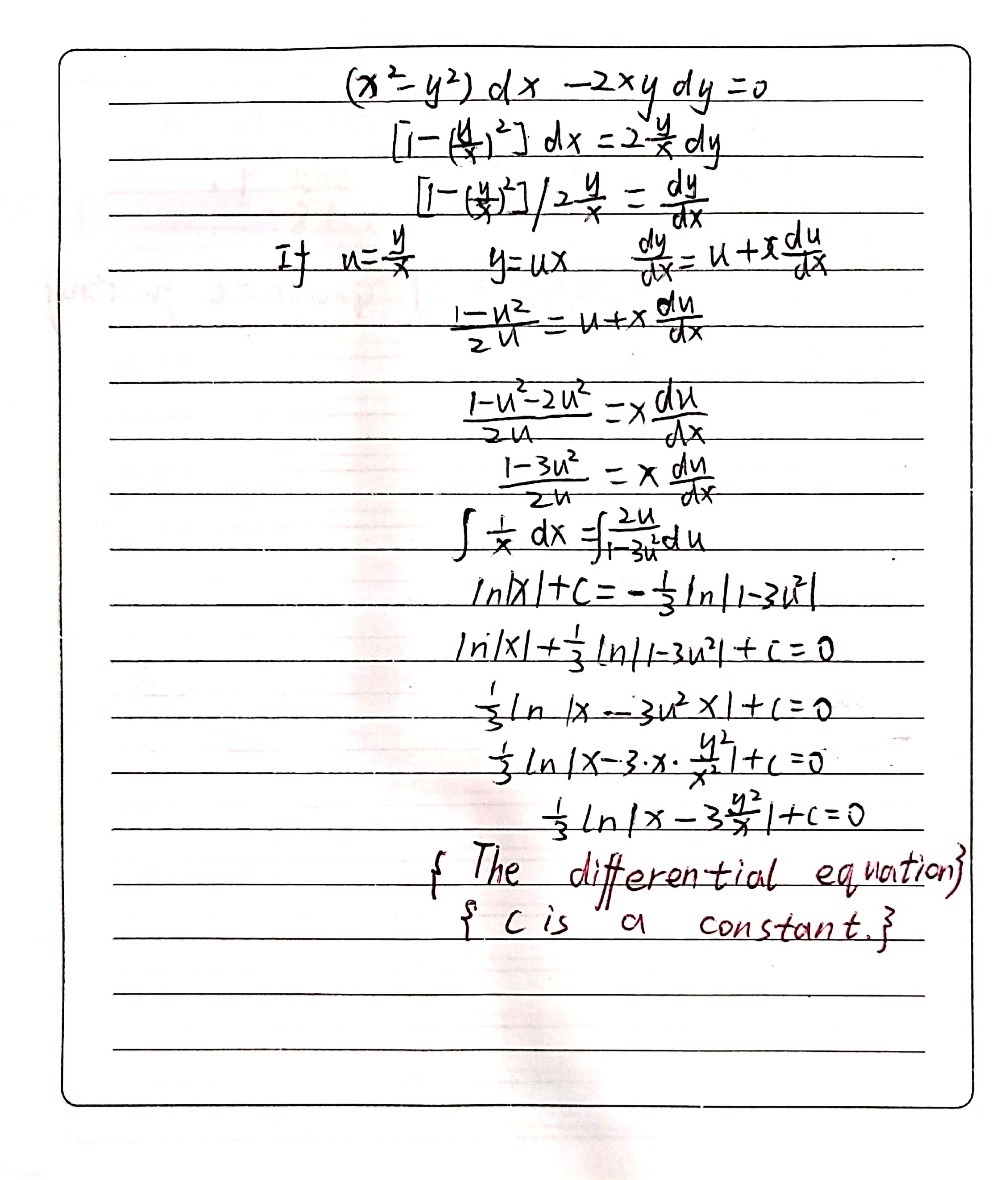 (x²-y²) dx -2xy dy =0
[1-(y/x)²] dx = 2 y/x dy
[1-(y/x)²] / 2 y/x = dy/dx
If u= y/x y=ux dy/dx = u + x du/dx
(1-u²)/(2u) = u+x du/dx
(1-u²-2u²)/(2u) = x du/dx
(1-3u²)/(2u) = x du/dx
∫ 1/x dx = ∫ 2u/(1-3u²) du
ln|x|+c = -1/3 ln|1-3u²|
ln|x|+1/3 ln|1-3u²|+c=0
1/3 ln |x - 3u² x|+c=0
1/3 ln |x-3·x· y²/x²|+c=0
1/3 ln |x - 3 y²/x|+c=0
{ The differential equation}
{ c is a constant.}